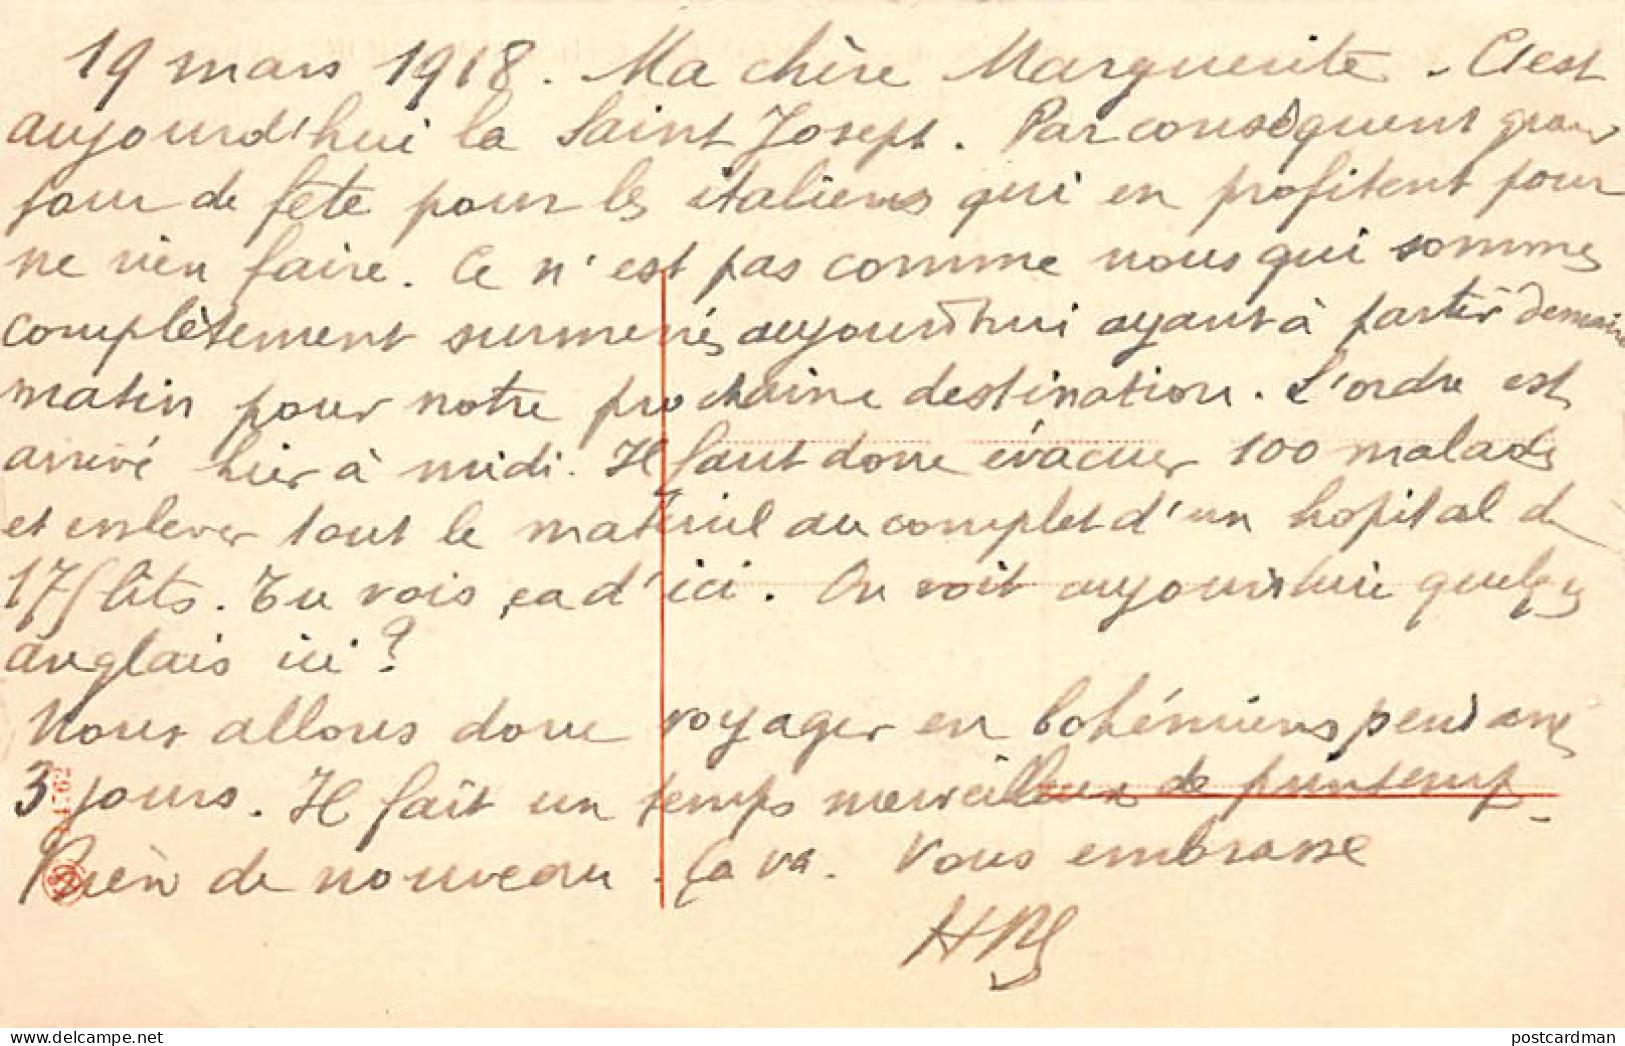 19 mars 1918. Ma chère Marguerite. C'est
aujourd'hui la Saint Josept. Par conséquent grand
jour de fête pour les italiens qui en profitent pour
ne rien faire. Ce n'est pas comme nous qui sommes
complètement surmenés aujourd'hui ayant à partir demain
matin pour notre prochaine destination. L'ordre est
arrivé hier à midi. Il faut donc évacuer 100 malades
et enlever tout le matériel au complet d'un hopital de
175 lits. Tu vois ça d'ici. On voit aujourd'hui quelques
anglais ici?
Nous allons donc voyager en bohémiens pendant
3 jours. Il fait un temps merveilleux de printemps.
Rien de nouveau. Ça va. Vous embrasse
postcardman